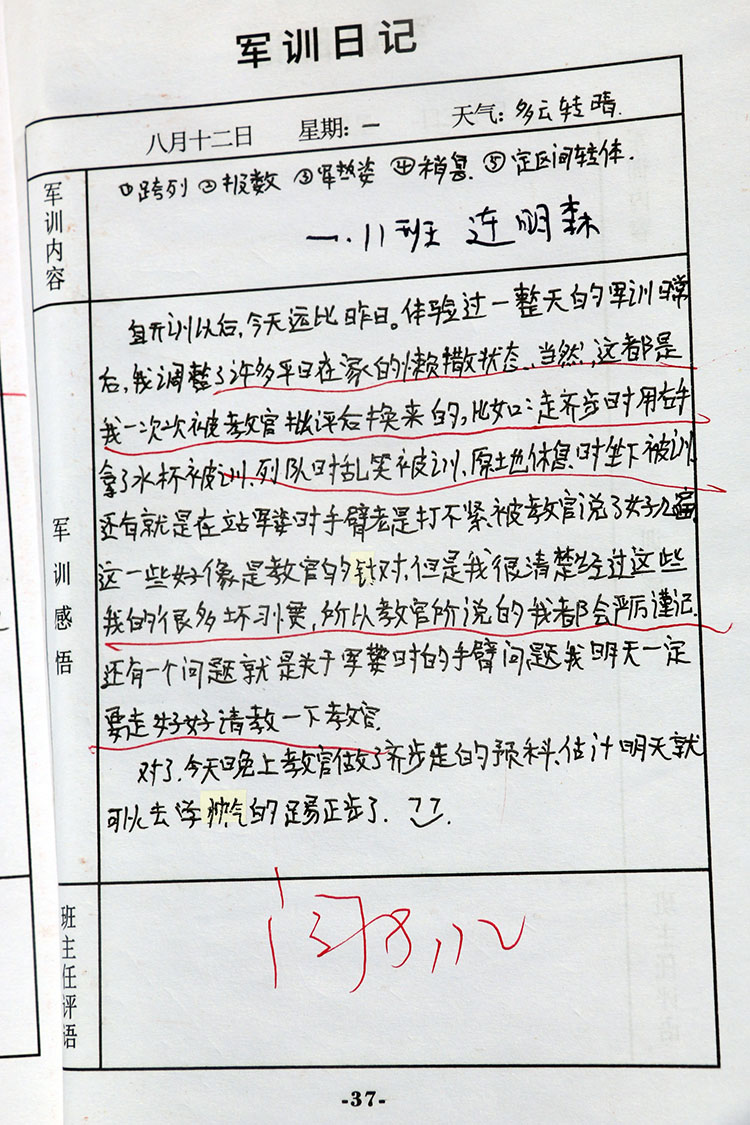 军训日记
八月十二日 星期:一 天气:多云转晴.
军训内容
①跨列 ②报数 ③军姿 ④稍息 ⑤定区间转体.
一.11班 连明森
军训感悟
自开训以后,今天远比昨日。体验过一整天的军训日常
后,我调整了许多平日在家的懒散状态、当然,这都是
我一次次被教官批评后换来的,比如:走齐步时用右手
拿了水杯被训、列队时乱笑被训、原土地休息时坐下被训
还有就是在站军姿时手臂老是打不紧、被教官说了好几遍
这一些好像是教官的针对,但是我很清楚经过这些
我的很多坏习惯,所以教官所说的我都会严厉谨记.
还有一个问题就是关于军姿时的手臂问题我明天一定
要走好好请教一下教官.
对了、今天晚上教官做了齐步走的预科、估计明天就
可以去学帅气的踢正步了.
班主任评语
闫8,12
-37-